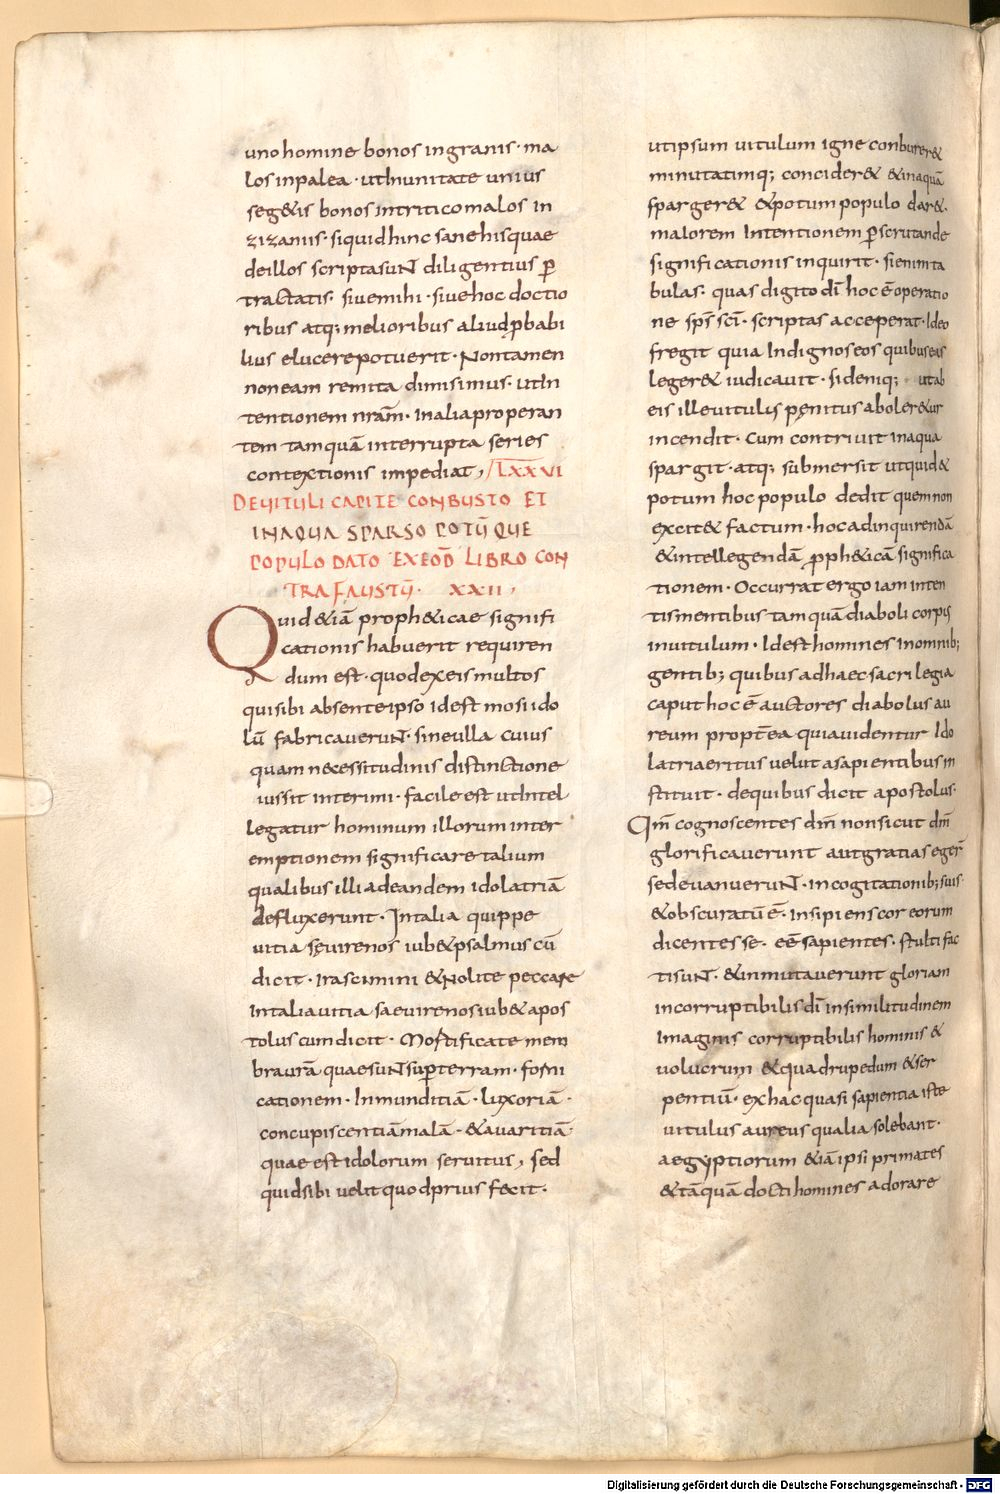 uno homine bonos in granis · ma
los in palea · ut In unitate unius
seg&is bonos in tritico malos in
zizaniis · siquid hinc sane hisquae
deillos scripta suNt diligentius p̄
tractatis · siue mihi · siue hoc doctio
ribus atq; melioribus aliud ꝓbabi
lius elucere potuerit · Non tamen
non eam remita dimisimus · ut In
tentionem nr̄am · In alia properan
tem tamquā interrupta series
contextionis impediat, LXXVI
DE UITULI CAPITE CONBUSTO ET
IN AQUA SPARSO POTŪ QUE
POPULO DATO EX EOD̄ LIBRO CON
TRA FAUSTŪ · XXII,
Quid &iā proph&icae signifi
cationis habuerit requiren
dum est · quod ex eis multos
qui sibi absente ipso id est mosi ido
lū fabricaueruNt · sine ulla cuius
quam necessitudinis distinctione
iussit interimi · facile est ut Intel
legatur hominum illorum inter
emptionem significare talium
qualibus illi ad eandem idolatriā
defluxerunt · In talia quippe
uitia sęuire nos iub& psalmus cū
dicit · Irascimini & Nolite peccare
In talia uitia saeuire nos iub& apos
tolus cum dicit · Mortificate mem
bra urā̄ quae suNt sup̄ terram · forni
cationem · Inmunditiā · luxoriā ·
concupiscentiā malā · & auaritiā
quae est idolorum seruitus, sed
quid sibi uelit quod prius fecit ·
ut ipsum uitulum igne conburer&
minutatimq; concider& & in aquā
sparger& & potum populo dar& ·
maiorem Intentionem p̄scrutande
significationis inquirit · si enim ta
bulas · quas digito dī hoc ē operatio
ne sp̄s sc̄i · scriptas acceperat · Ideo
fregit quia Indignos eos quibus eas
leger& iudicauit · si deniq; ut ab
eis ille uitulis pęnitus aboler&ur
incendit · Cum contriuit in aqua
spargit · atq; submersit ut quid &
potum hoc populo dedit quem non
excit& factum · hoc ad inquirendā
& intellegendā proph&icā significa
tionem · Occurrat ergo iam inten
tis mentibus tamquā diaboli corpus
in uitulum · Id est homines In omnib;
gentib; quibus ad haec sacrilegia
caput hoc ē auctores diabolus au
reum propt̄ea quia uidentur Ido
latriae ritus uelut a sapientibus in
stituit · de quibus dicit apostolus ·
Qm̄ cognoscentes dm̄ non sicut dm̄
glorificauerunt aut gratias eger̄
sed euanueruNt · in cogitationib; suis ·
& obscuratū ē · Insipiens cor eorum
dicentes se · eē sapientes · stulti fac
ti suNt · & inmutauerunt gloriam
incorruptibilis dī in similitudinem
Imaginis corruptibilis hominis &
uolucrum & quadrupedum & ser
pentiū · ex hac quasi sapientia iste
uitulus aureus qualia solebant ·
aegyptiorum &iā ipsi primates
& tāquā docti homines adorare
Digitalisierung gefördert durch die Deutsche Forschungsgemeinschaft - DFG